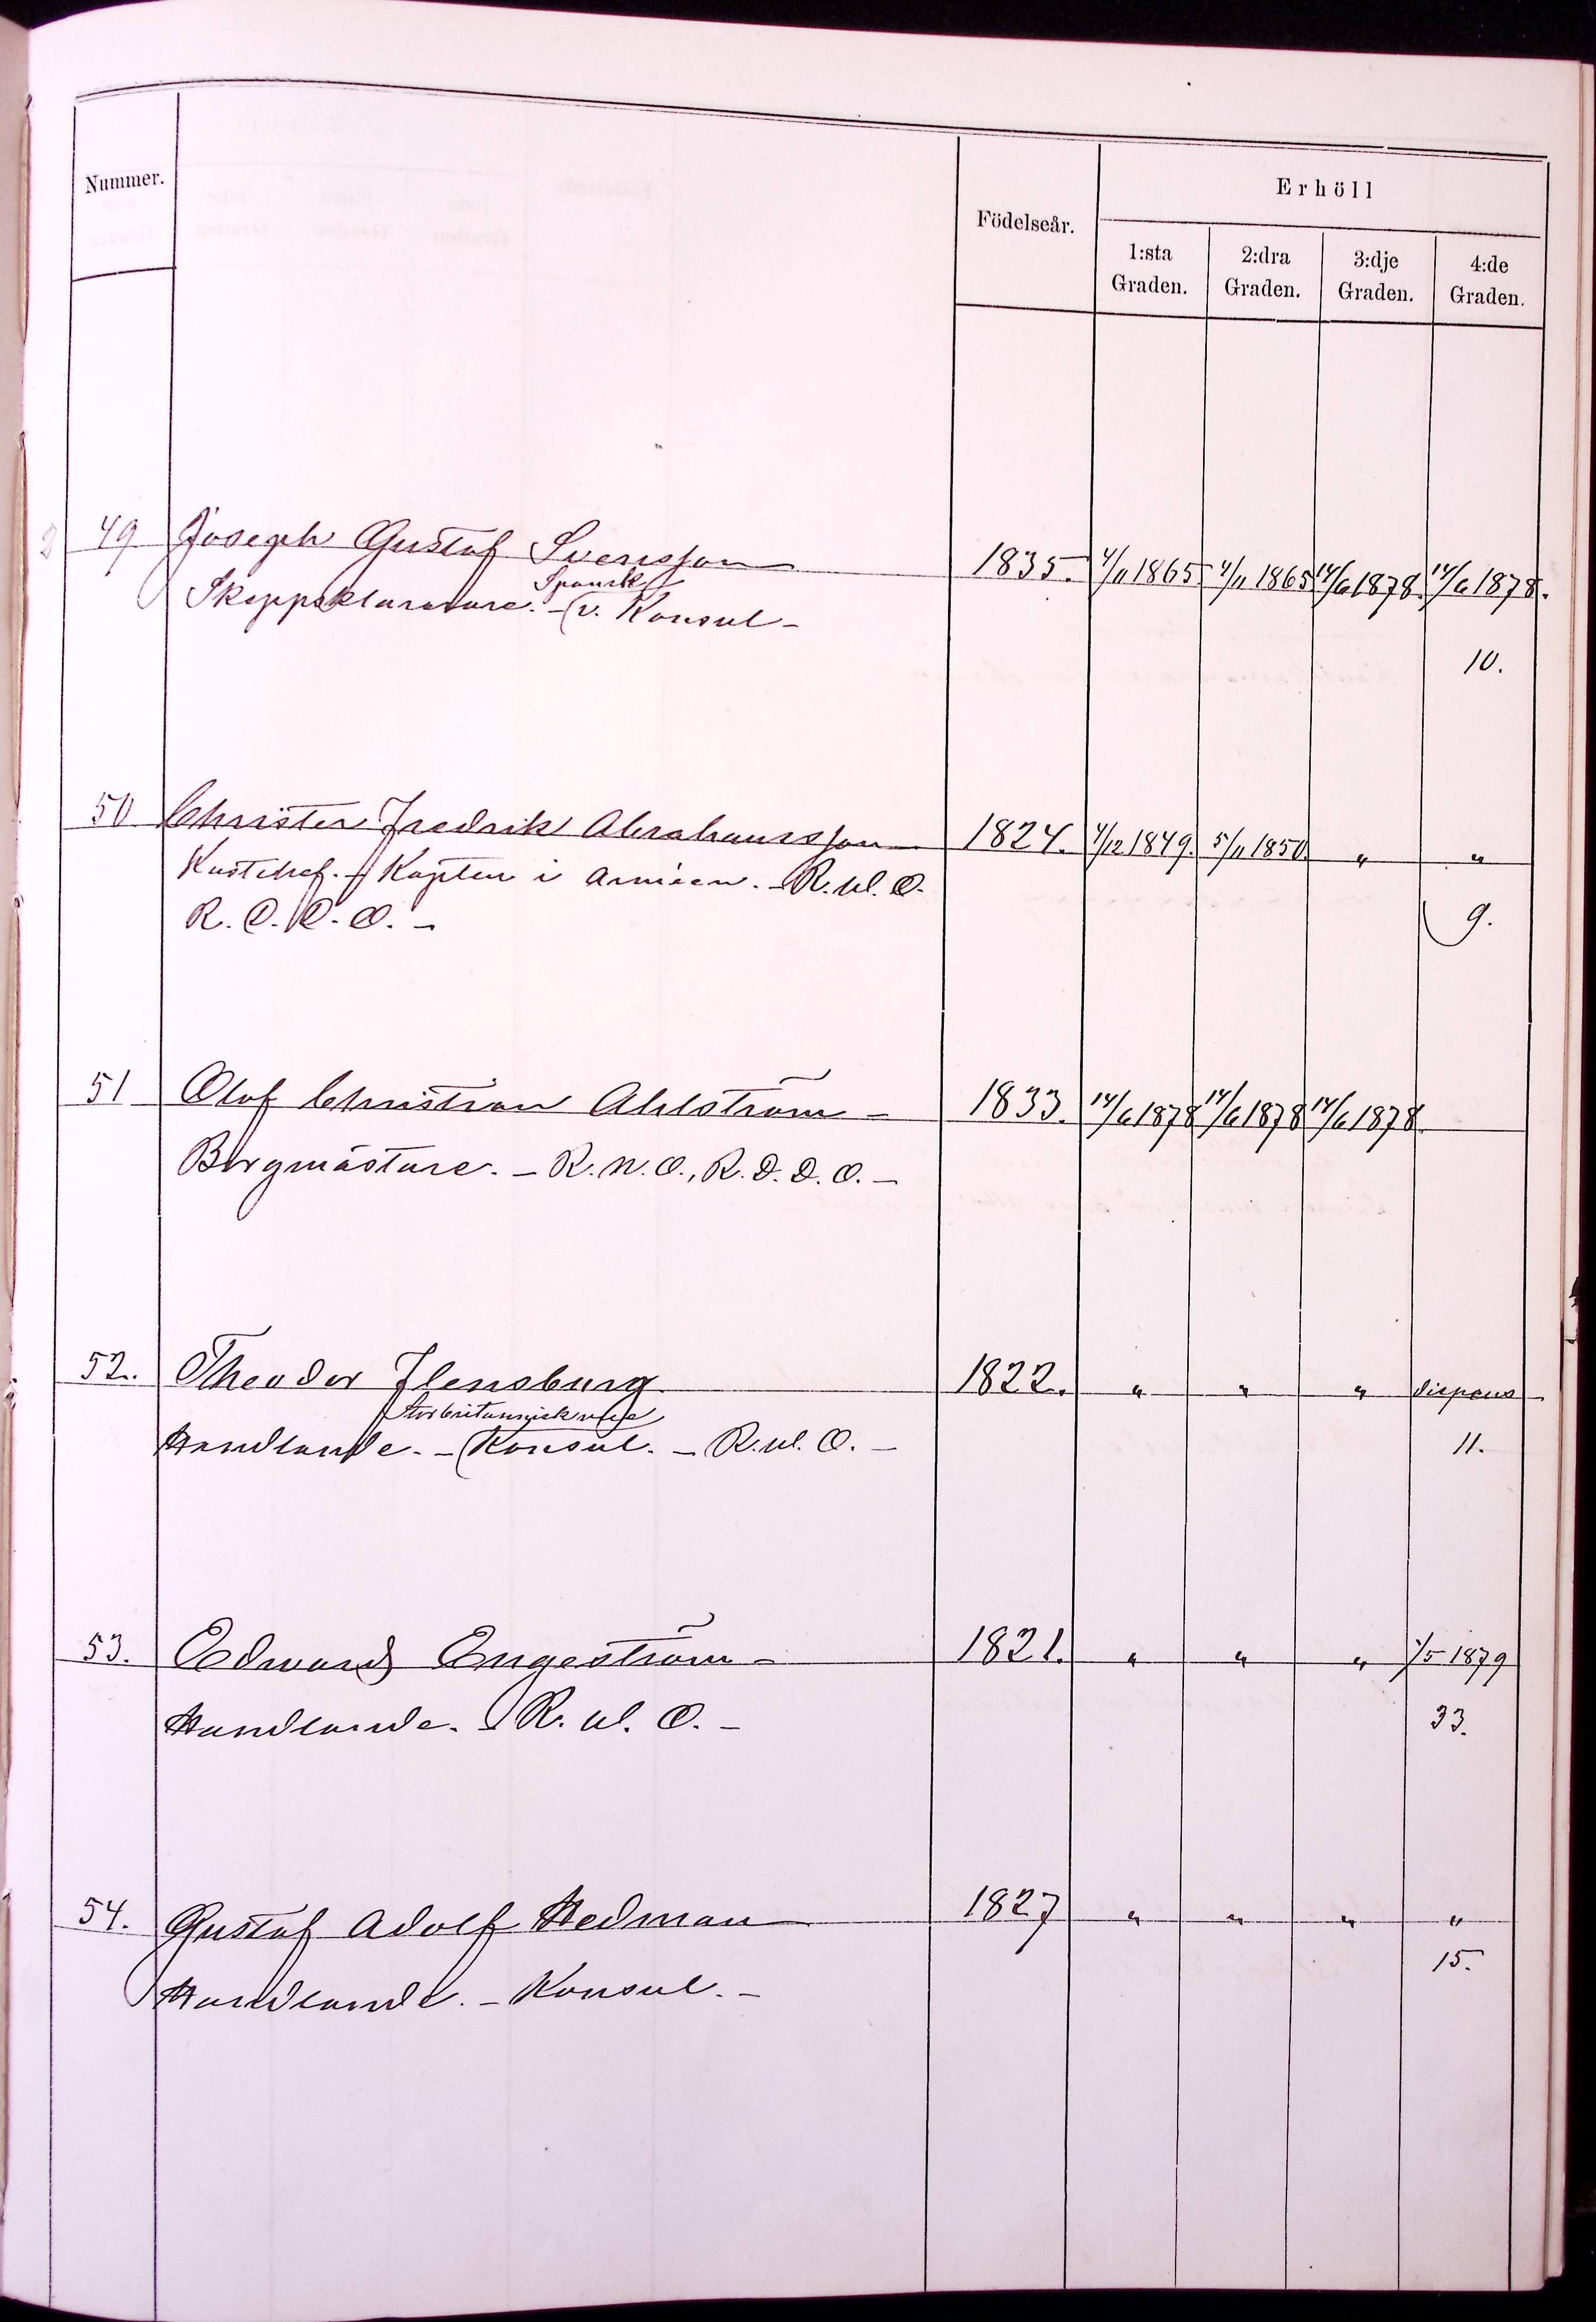 Nummer.
Födelseår.
Erhöll
1:sta Graden.
2:dra Graden.
3:dje Graden.
4:de Graden.
49 Joseph Gustaf Svensson 1835. 4/11 1865 4/11 1865 14/6 1878. 14/6 1878.
Spansk
Skeppsklarerare. - v. Konsul -
10.
50 Christer Fredrik Abrahamsson 1824. 4/12 1849. 5/11 1850 " "
Kustchef. - Kapten i Armeen. - R.W.O.
R.D.D.O. -
9.
51 Olof Christian Ahlström - 1833. 14/6 1878 14/6 1878 14/6 1878
Borgmästare. - R.N.O., R.D.D.O. -
52. Theodor Flensburg 1822. " " " dispens
Storbritannisk vice
Handlande. - Konsul. - R.W.O. -
11.
53. Edward Engeström - 1821. " " " 1/5 1879
Handlande. - R.W.O. -
33.
54. Gustaf Adolf Hedman 1827 " " " "
15.
Handlande. - Konsul. -